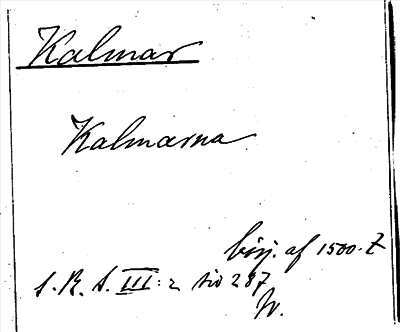 Kalmar
Kalmarna
börj. af 1500. t
S. R. S. III: 2 sid 287